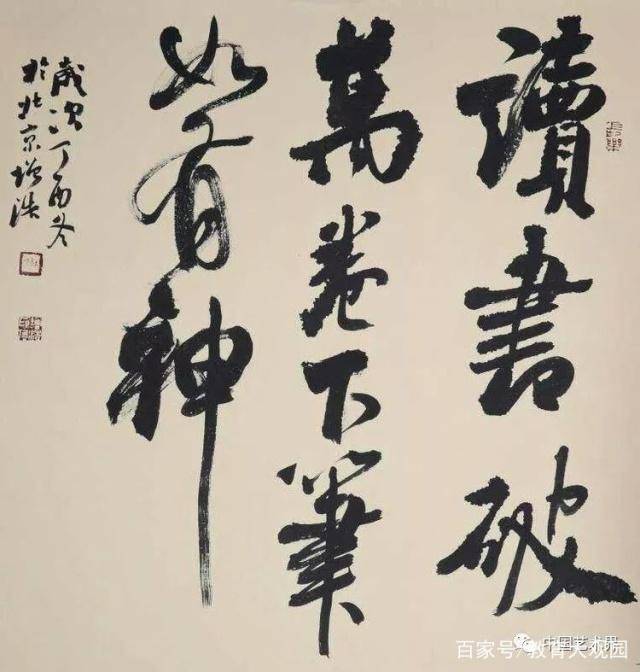 讀書破
萬卷下筆
如有神
歲次丁酉冬
於北京增浩
中国艺术界
百家号/教育大观园